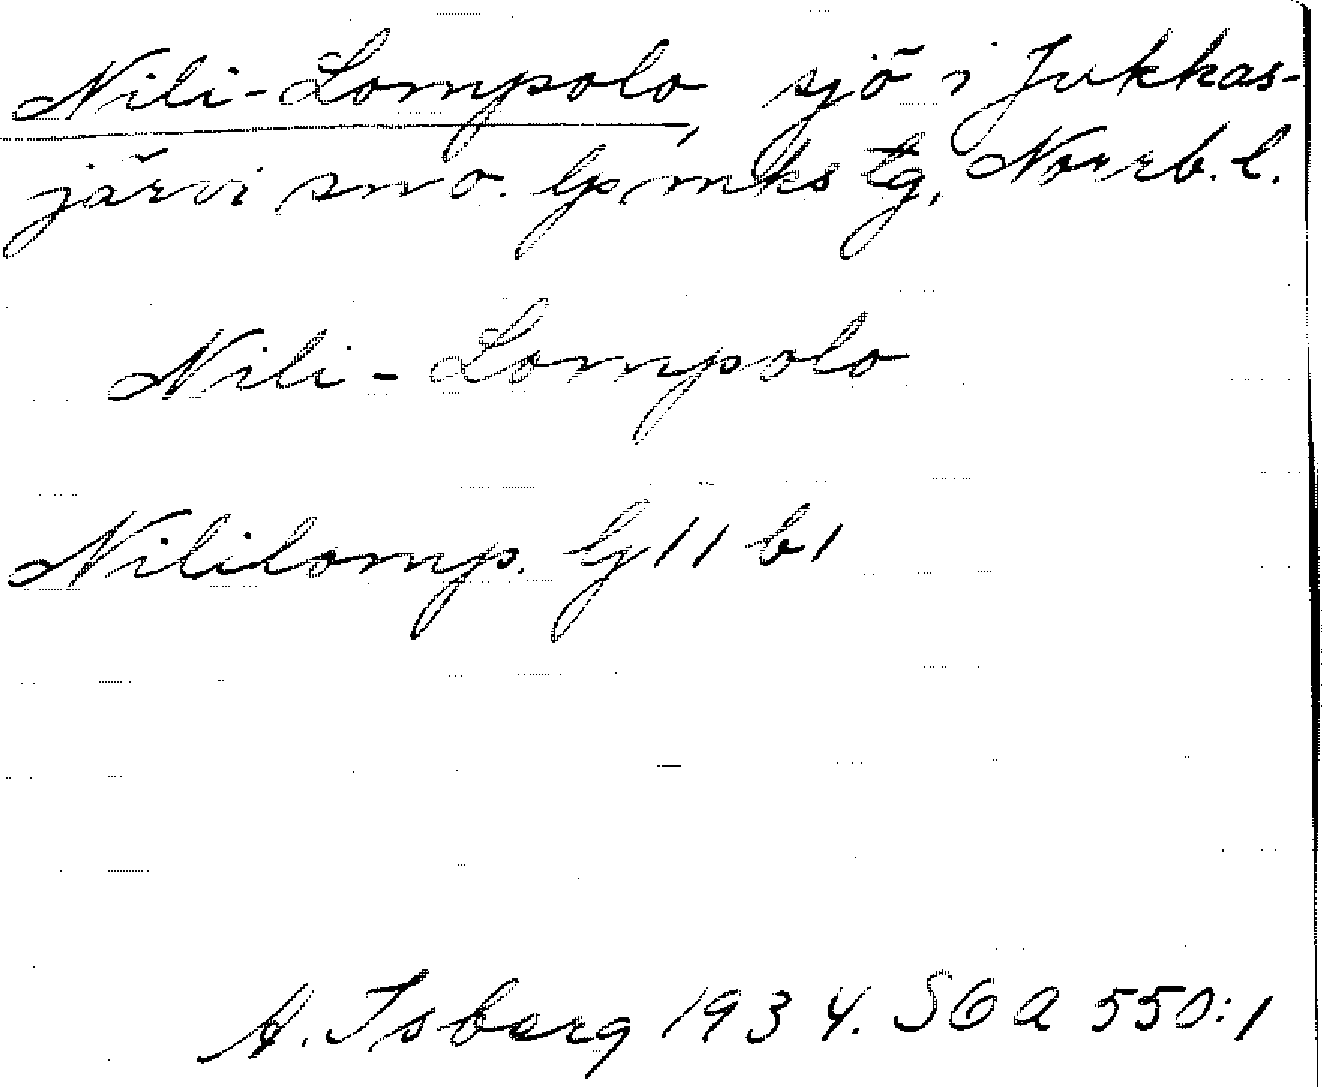 Nili-Lompolo, sjö i Jukkas-
järvi sn o. lpmks tg, Norrb. l.
Nili-Lompolo
Nililomp. Gj 11 b1
A. Isberg 1934. SGA 550:1